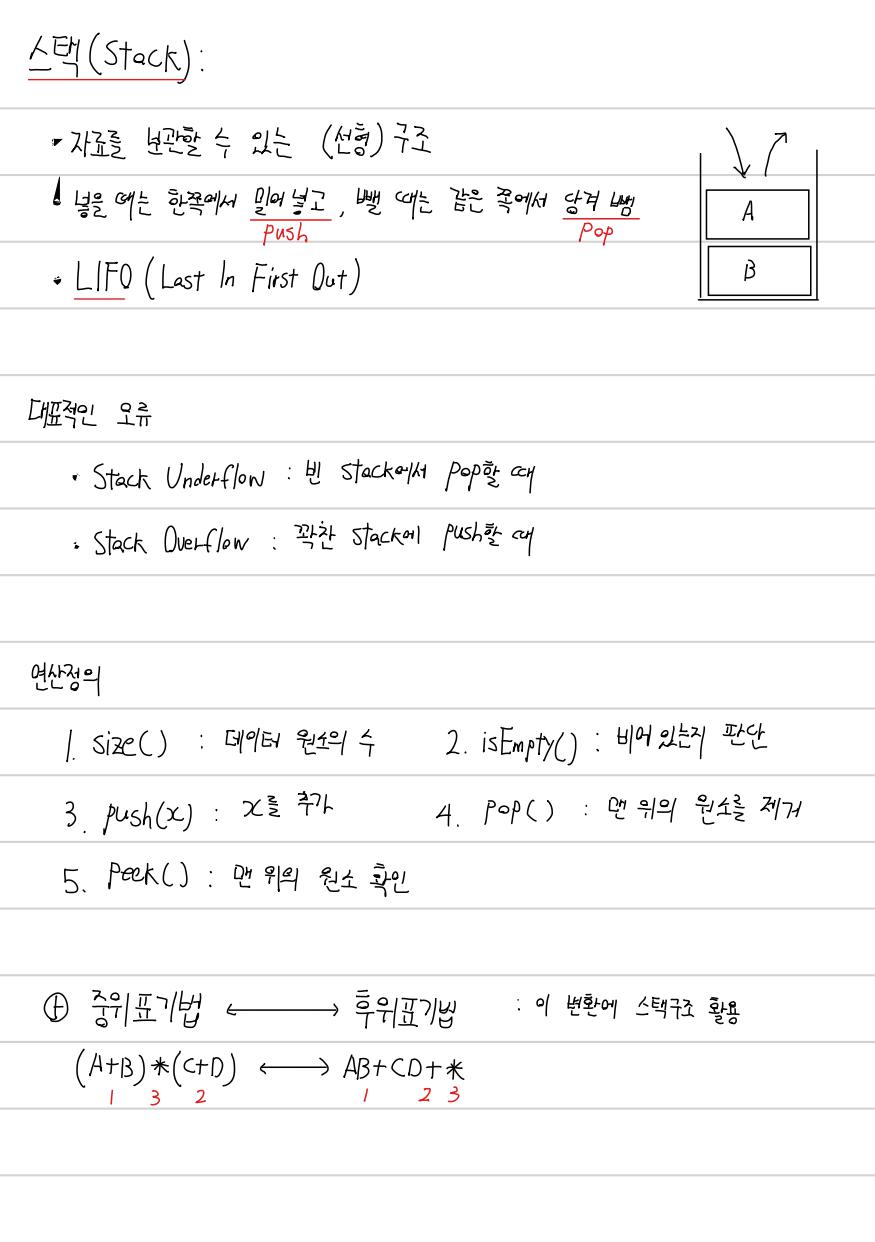 스택(Stack):
• 자료를 보관할 수 있는 (선형) 구조
• 넣을 때는 한쪽에서 밀어 넣고, 뺄 때는 같은 쪽에서 당겨 뺌
push pop
• LIFO (Last In First Out)
A
B
대표적인 오류
• Stack Underflow : 빈 stack에서 pop할 때
• Stack Overflow : 꽉찬 stack에 push할 때
연산정의
1. size() : 데이터 원소의 수 2. isEmpty() : 비어있는지 판단
3. push(x) : x를 추가 4. pop() : 맨 위의 원소를 제거
5. peek() : 맨 위의 원소 확인
⊕ 중위표기법 ⟷ 후위표기법 : 이 변환에 스택구조 활용
(A+B)*(C+D) ⟷ AB+CD+*
1 3 2 1 2 3